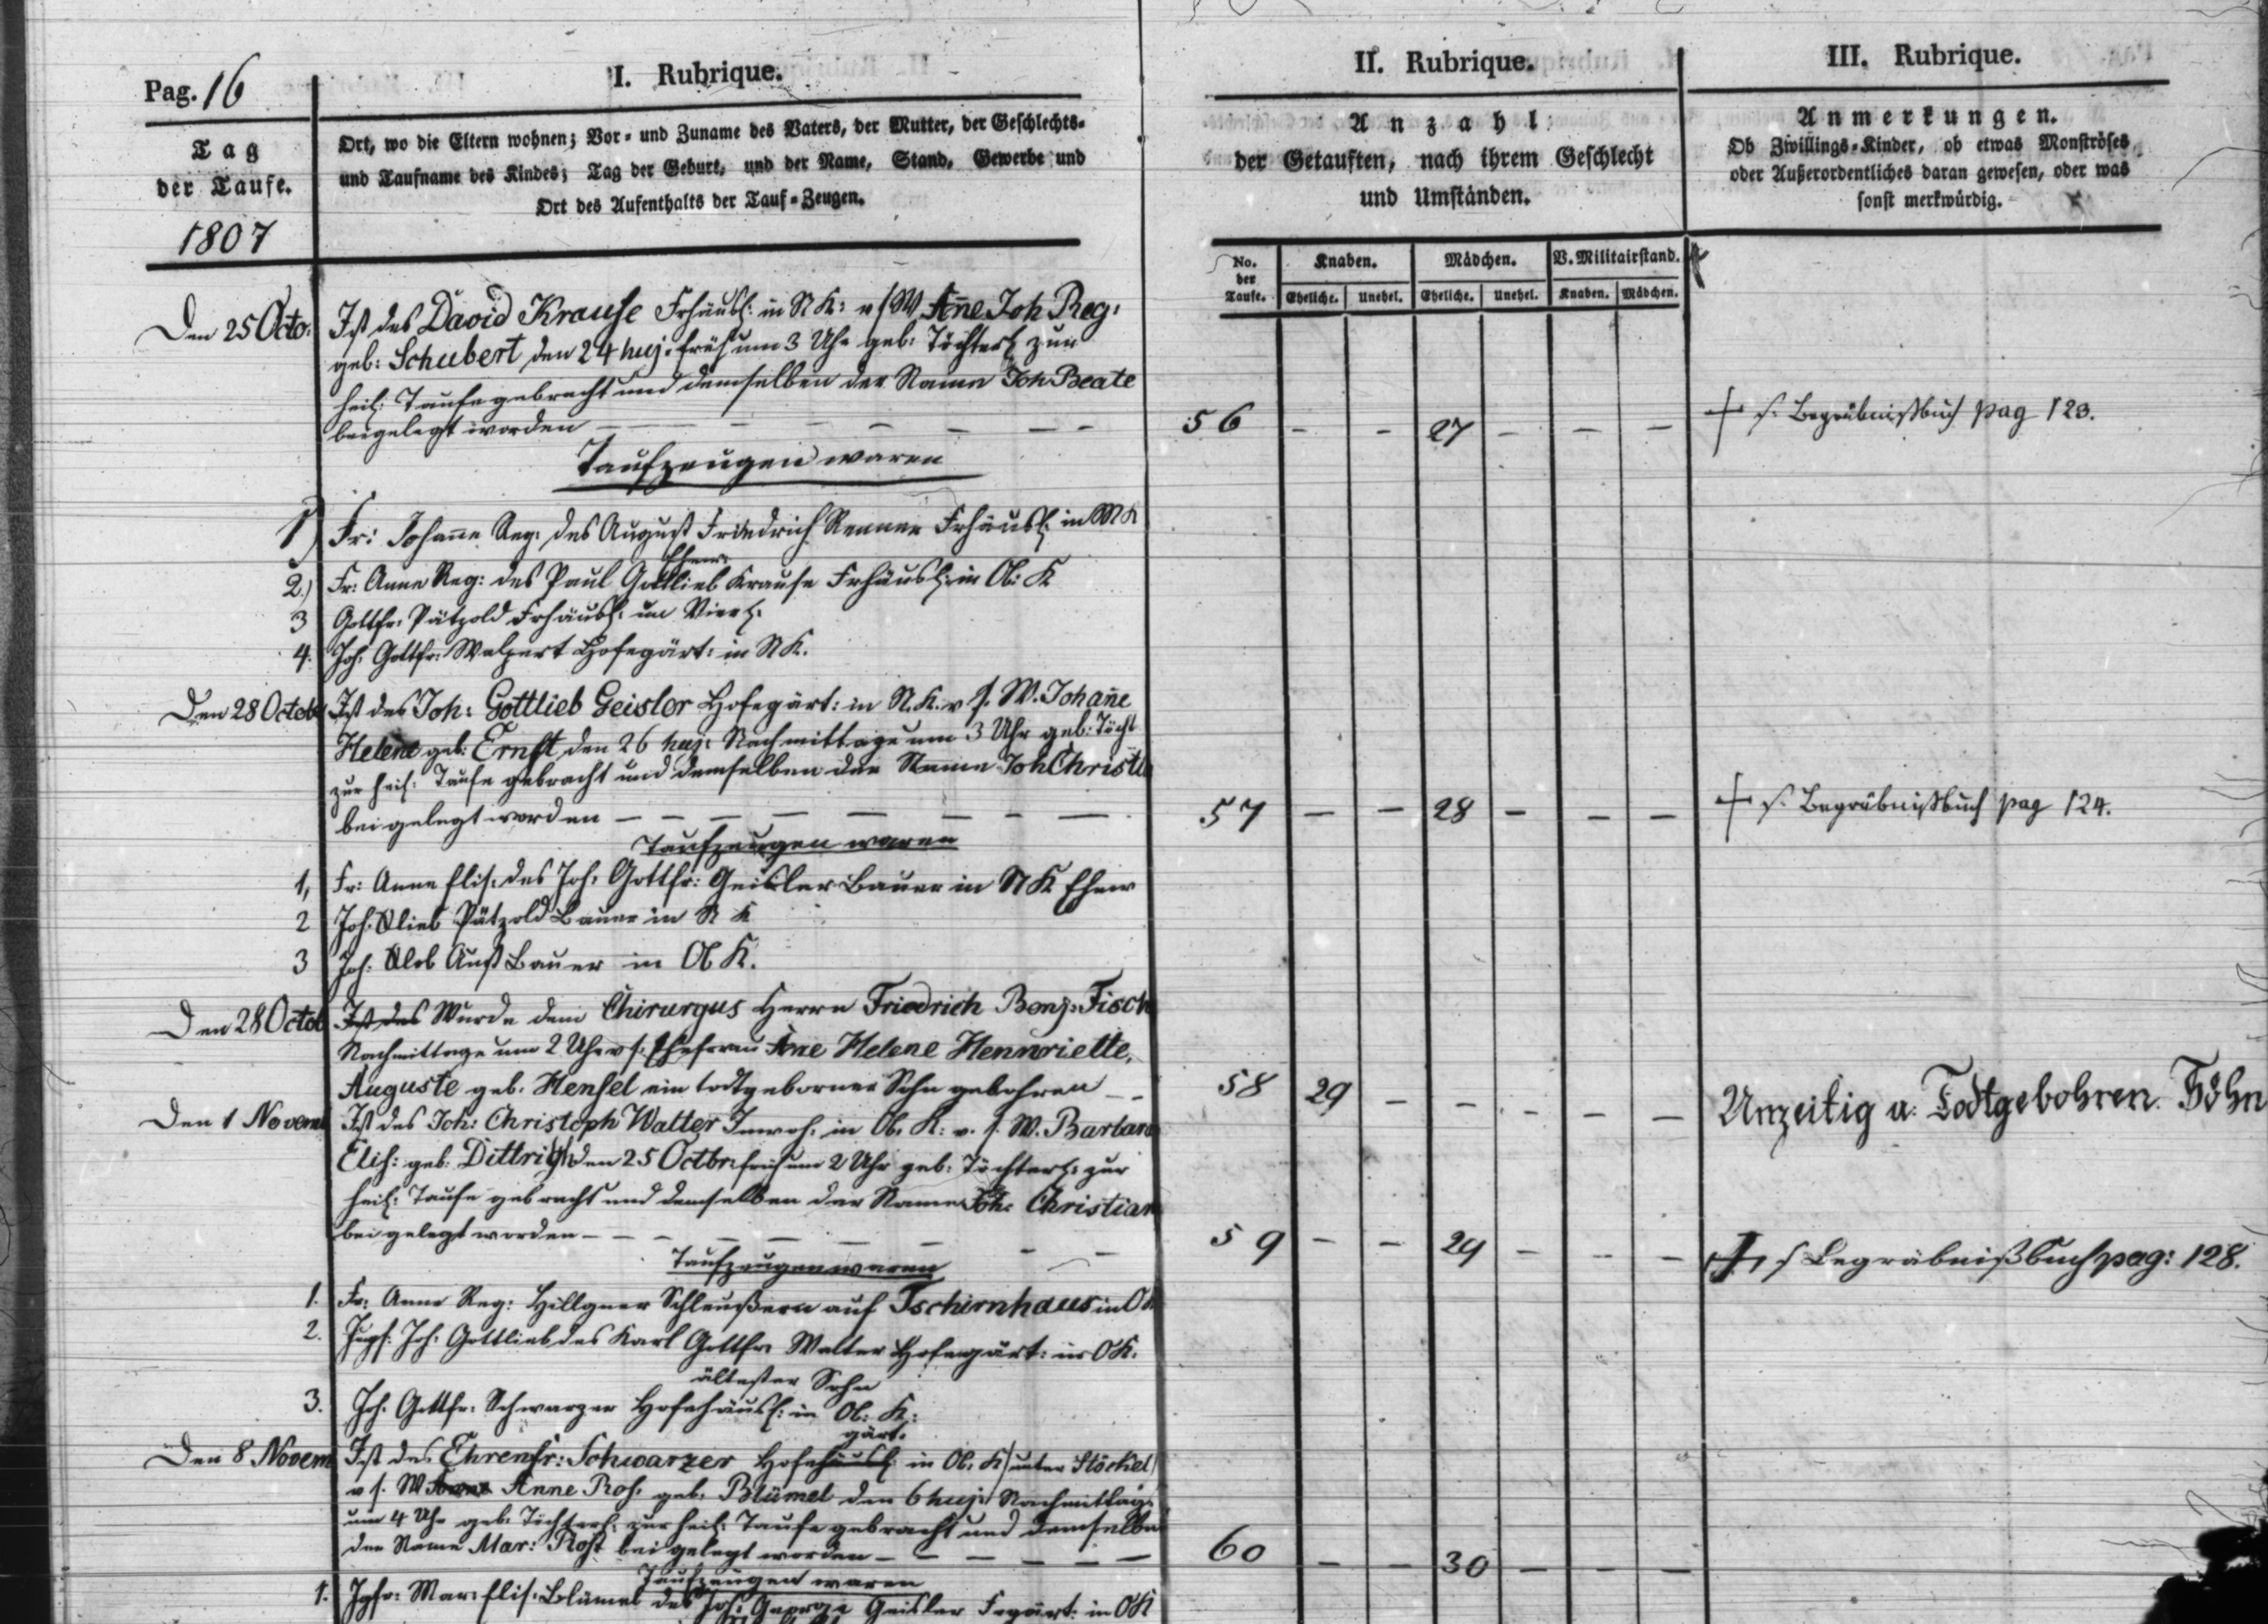 Pag. 16
I. Rubrique.
II. Rubrique.
III. Rubrique.
Tag
der Taufe.
1807
Ort, wo die Eltern wohnen; Vor- und Zuname des Vaters, der Mutter, der Geschlechts-
und Taufname des Kindes; Tag der Geburt, und der Name, Stand, Gewerbe und
Ort des Aufenthalts der Tauf-Zeugen.
Anzahl
der Getauften, nach ihrem Geschlecht
und Umständen.
Anmerkungen.
Ob Zwillings-Kinder, ob etwas Monströses
oder Außerordentliches daran gewesen, oder was
sonst merkwürdig.
No. der Taufe. Knaben. Mädchen. V. Militairstand.
Eheliche. Unehel. Eheliche. Unehel. Knaben. Mädchen.
Den 25 Octo: Ist des David Krause Frhäusl: in N K: v s W Añe Joh Reg:
geb: Schubert den 24 huj: früh um 3 Uhr geb: Töchterl zur
heil: Taufe gebracht und demselben der Name Joh Beate
beigelegt worden — — — — — — 56 — — 27 — — — † s. Begräbnißbuch pag 123.
Taufzeugen waren
1) Fr: Johanne Reg: des August Friedrich Renner Frhäusl: in N K
Ehew:
2.) Fr: Anne Reg: des Paul Gottlieb Krause Frhäusl: in Ob: K
3 Gottfr: Pätzold Frhäusl: im Viert:
4. Joh: Gottfr: Walpert Hofegärt: in N K.
Den 28 Octob Ist des Joh: Gottlieb Geisler Hofegärt: in N. K. v s. W. Johañe
Helene geb: Ernst den 26 huj: Nachmittage um 3 Uhr geb: Töcht
zur heil: Taufe gebracht und demselben der Name Joh Christ
beigelegt worden — — — — — — — 57 — — 28 — — — † s. Begräbnißbuch pag 124.
Taufzeugen waren
1, Fr: Anne Elis: des Joh: Gottfr: Geisler Bauer in N K Ehew
2 Joh. Glieb Pätzold Bauer in N K
3 Joh: Glob Aust Bauer in Ob K.
Den 28 Octob Ist des Wurde dem Chirurgus Herrn Friedrich Benj: Fisch
Nachmittage um 2 Uhr v s. Ehefrau Añe Helene Hennriette,
Auguste geb. Hensel ein todtgeborner Sohn gebohren — — 58 29 — — — — — Unzeitig u. Todtgebohren. Söhn
Den 1 Novemb Ist des Joh: Christoph Walter Inwoh. in Ob. K: v. s. W. Barbara
Elis: geb: Dittrich den 25 Octbr: früh um 2 Uhr geb: Töchterl: zur
heil: Taufe gebracht und demselben der Name Joh: Christian
beigelegt worden — — — — — — — — 59 — — 29 — — — † s Begräbnißbuch pag: 128.
Taufzeugen waren
1. Fr: Anne Reg: Hillgner Schleußern auf Tschirnhaus in OK
2. Jugs. Joh: Gottlieb des Karl Gottfr: Walter Hofegärt: in OK.
ältester Sohn
3. Joh: Gottfr: Schwarzer Hofehäusl: in Ob: K:
gärt.
Den 8 Novem Ist des Ehrenfr: Schwarzer Hofehäusl in Ob. K) unter Stöckel)
v s. W Anne Anne Ros. geb. Blümel den 6 huj: Nachmittag
um 4 Uhr geb: Töchterl: zur heil: Taufe gebracht und demselben
der Name Mar: Ros: beigelegt worden — — — — — — 60 — — 30 — — —
Taufzeugen waren
1. Jgfr: Mar: Elis: Blümel des Joh: George Geisler Fregärt: in OK